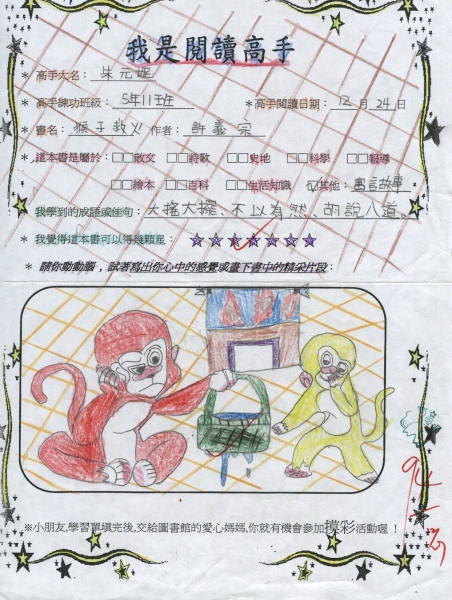 我是閱讀高手
* 高手大名：朱元妮
* 高手練功班級：5年11班 *高手閱讀日期：12月24日
* 書名：猴子救火 作者：許義宗
* 這本書是屬於：□□散文 □□詩歌 □□史地 □□科學 □□報導
□□繪本 □□百科 □□生活知識 ☑其他：寓言故事
我學到的成語或佳句：大搖大擺、不以為然、胡說八道。
* 我覺得這本書可以得幾顆星：☆☆☆☆☆☆☆
* 請你動動腦，試著寫出你心中的感覺或畫下書中的精采片段：
※小朋友,學習單填完後,交給圖書館的愛心媽媽,你就有機會參加摸彩活動喔！